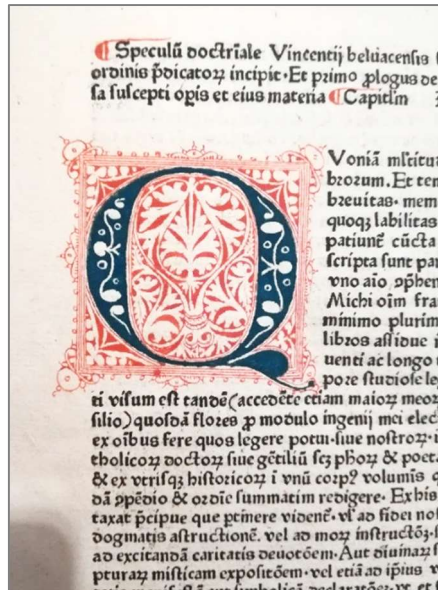 ¶ Speculū doctrīale Vincentij beluacensis
ordinis p̄dicatoꝝ incipit · Et primo ꝓlogus de
sa suscepti oꝑis et eius materia ¶ Capitlm
QVoniā mltitu
brorum. Et tem
breuitas· mem
quoqꝫ labilitas
patiunt̄ cūcta
scripta sunt par
vno aīo
Michi oīm fra
minimo plurim
libros assidue
uenti ac longo
pore studiose le
ti visum est tandē (accedēte etiam maioꝝ meoꝝ
silio) quosdā flores ꝓ modulo ingenij mei elec
ex oībus fere quos legere potui· siue nostroꝝ· i
tholicoꝝ doctoꝝ siue gētiliū scꝫ ph̄oꝝ & poeta
& ex vtrisqꝫ historicoꝝ ī vnū corpꝰ volumīs
dā ꝯpēdio & ordīe summatim redigere. Ex his
taxat p̄cipue que ptinere vident̄· vl̓ ad fidei nos
dogmatis astructionē. vel ad moꝝ instructōꝫ·
ad excitandā caritatis deuotōem. Aut diuinaꝝ s
pturaꝝ misticam expositōem· vel etiā ad ip̄ius v